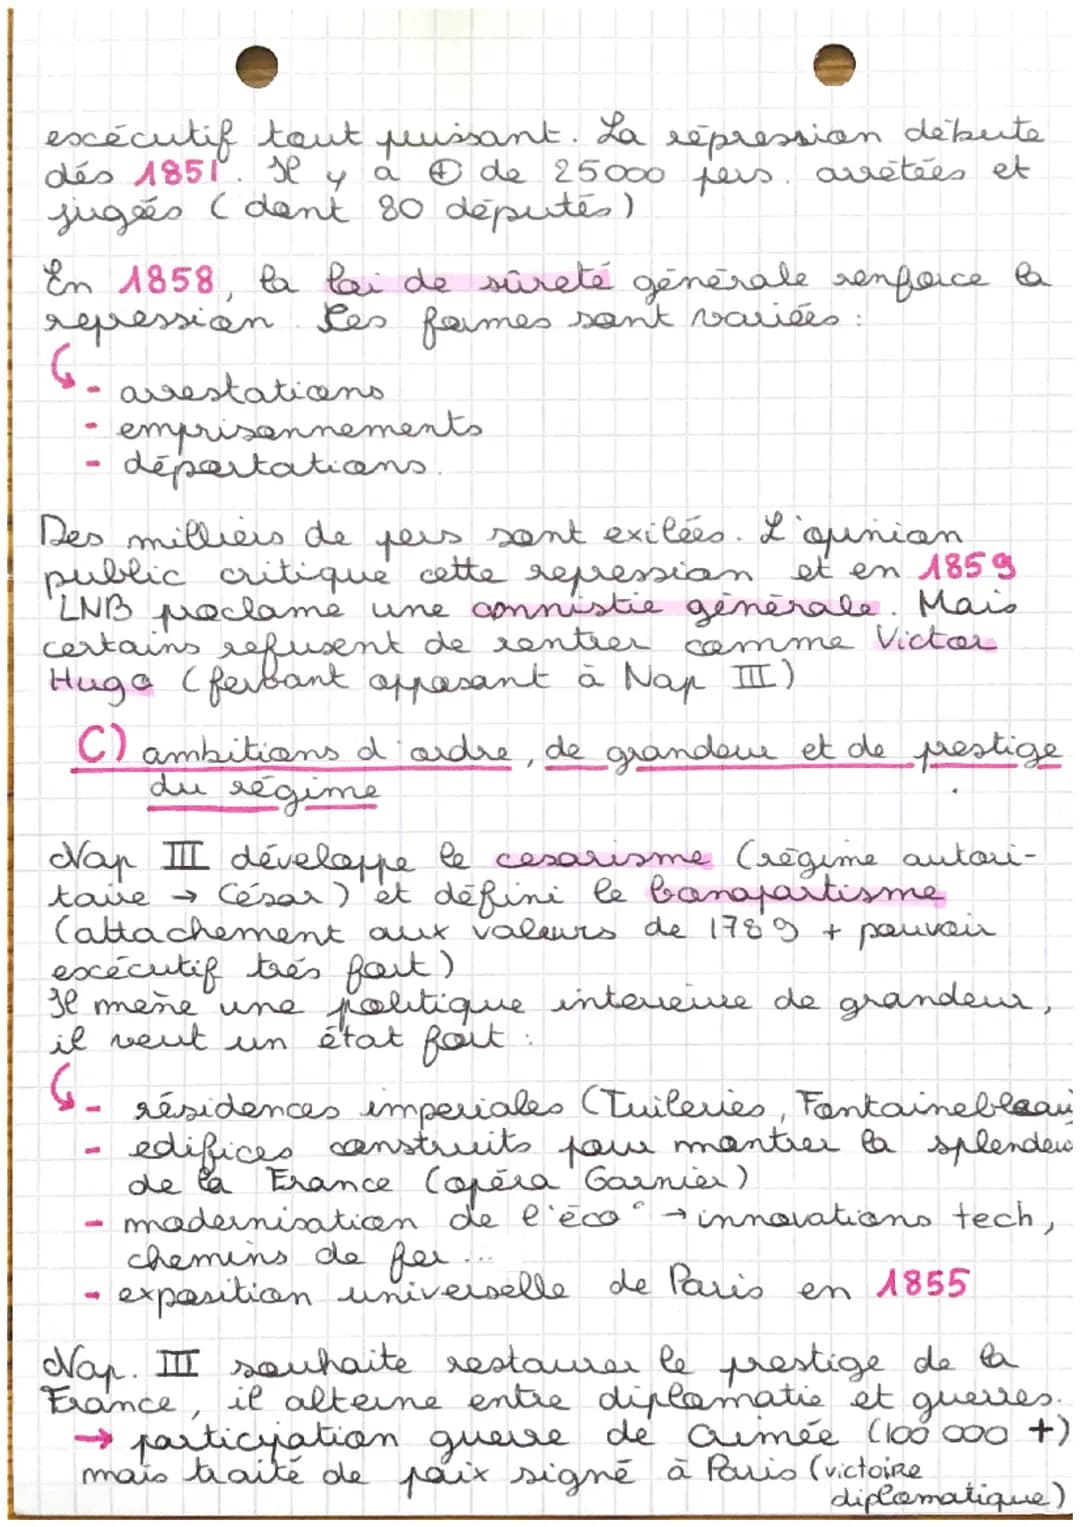 excécutif tout puissant. La répression débute
dés 1851. Il y a ⊕ de 25000 pers. arrêtées et
jugées (dont 80 députés)
En 1858, la loi de sûreté générale renforce la
repression. Les formes sont variées :
- arrestations
- emprisonnements
- déportations.
Des milliers de pers sont exilées. L'opinion
public critique cette repression et en 1859
LNB proclame une amnistie générale. Mais
certains refusent de rentrer comme Victor
Hugo (fervant opposant à Nap III)
C) ambitions d'ordre, de grandeur et de prestige
du régime
Nap III développe le cesarisme (régime autori-
taire → César) et défini le bonapartisme
(attachement aux valeurs de 1789 + pouvoir
excécutif trés fort)
Il mène une politique interieure de grandeur,
il veut un état fort :
- résidences imperiales (Tuileries, Fontainebleau
- edifices construits pour montrer la splendeur
de la France (opéra Garnier)
- modernisation de l'éco° → innovations tech,
chemins de fer...
- exposition universelle de Paris en 1855
Nap. III souhaite restaurer le prestige de la
France, il alterne entre diplomatie et guerres.
→ participation guerre de Crimée (100 000 +)
mais traité de paix signé à Paris (victoire
diplomatique)